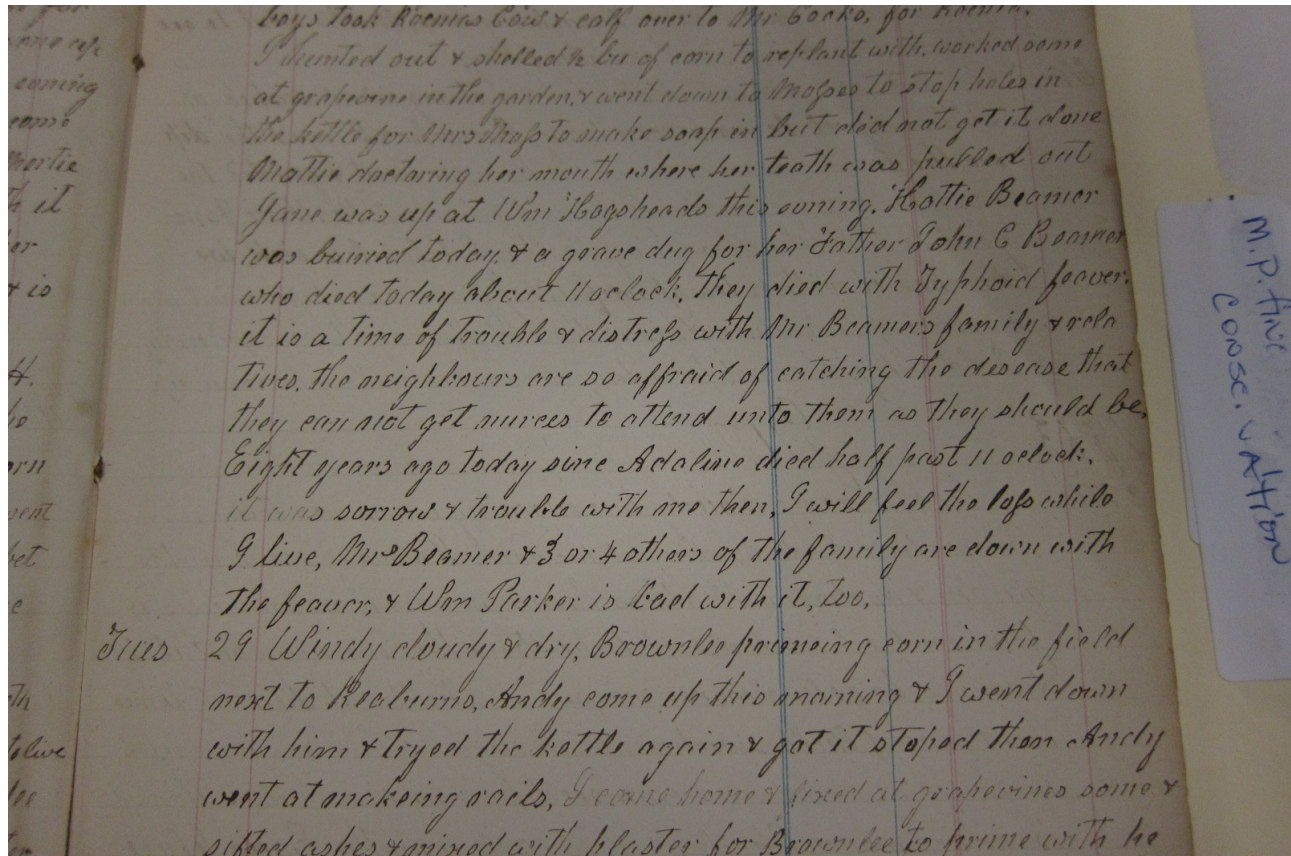 boys took Roenias Cow & calf over to Mr Cocks, for Roenia.
I hunted out & shelled ½ bu of corn to replant with. worked some
at grapevine in the garden, & went down to Mosses to stop holes in
the kettle for Mrs Moss to make soap in but did not get it done
Mattie doctaring her mouth where her teath was pulled out
Jane was up at Wm Hogsheads this evning. Hattie Beamer
was buiried today, & a grave dug for her Father John C Beamer
who died today about 11 oclock, they died with Typhoid feaver.
it is a time of trouble & distress with Mr Beamers family & rela
tives. the neighbours are so affraid of catching the desease that
they can not get nurces to attend unto them as they should be,
Eight years ago today sine Adaline died half past 11 oclock.
it was sorrow & trouble with me then, I will feel the loss while
I live, Mrs Beamer & 3 or 4 others of the family are down with
the feaver, & Wm Parker is bad with it, too,
Tues 29 Windy cloudy & dry, Brownlee primeing corn in the field
next to Reaburns, Andy come up this morning & I went down
with him & tryed the kettle again & got it stoped then Andy
went at makeing rails, I come home & fixed at grapevines some &
sifted ashes & mixed with plaster for Brownlee to prime with he
evning
come
it
er
& is
H.
orn
ment
olive
M.P.